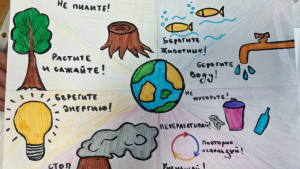 НЕ ПИЛИТЕ!
РАСТИТЕ
И САЖАЙТЕ!
БЕРЕГИТЕ
ЖИВОТНЫХ!
БЕРЕГИТЕ
ВОДУ!
БЕРЕГИТЕ
ЭНЕРГИЮ!
НЕ
МУСОРИТЕ!
ПЕРЕРАБАТЫВАЙ!
ПОВТОРНО
ИСПОЛЬЗУЙ!
СТОП